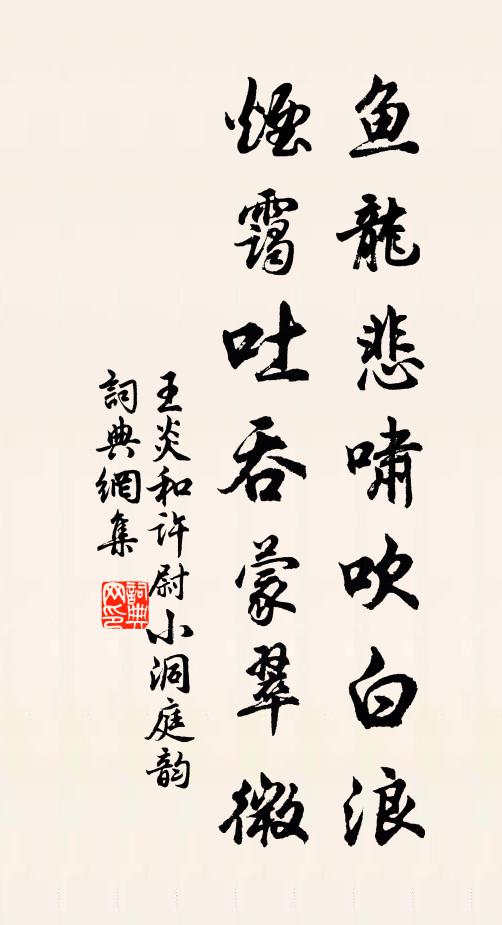 鱼龍悲嘯吹白浪
煙靄吐吞蒙翠微
王炎和许尉小洞庭韵
詞典網集
詞典网印